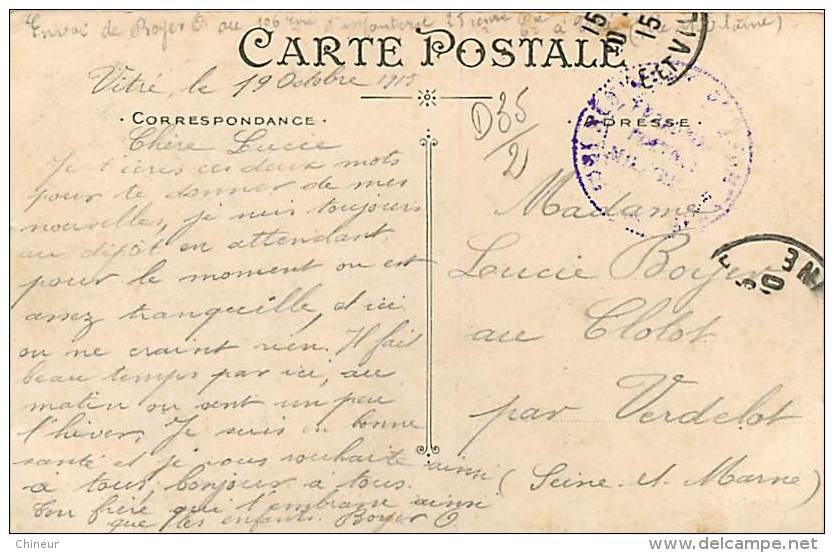 Envoi de Boyer O au 106 d'infanterie 25
CARTE POSTALE
Vitré, le 19 Octobre 1915
CORRESPONDANCE
ADRESSE
D35
2)
Chère Lucie
Je t'écris ces deux mots
pour te donner de mes
nouvelles, je suis toujours
au dépôt en attendant,
pour le moment ou est
assez tranquille, et ici
ou ne craint rien. Il fait
beau temps par ici, au
matin ou sent un peu
l'hiver, Je suis en bonne
santé et je vous souhaite ainsi
a tous bonjour à tous.
Ton frère qui t'embrasse ainsi
que les enfants. Boyer O
Madame
Lucie Boyer
au Clotot
par Verdelot
(Seine-et-Marne)
Chineur
delcampe.net